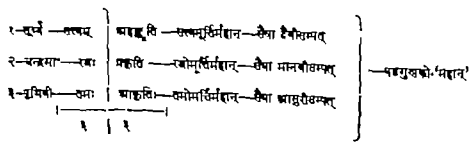 १-सूर्य्य —सत्त्वम् अहङ्कृति —सत्त्वमूर्तिर्महान् —सैषा दैवीसम्पत्
२-चन्द्रमा —रजः प्रकृति —रजोमूर्त्तिर्महान् —सैषा मानवीसम्पत् —षड्गुणको-'महान्'
३-पृथिवी —तमः आकृतिः —तमोमूर्त्तिर्महान् —सैषा आसुरीसम्पत्
३ ३